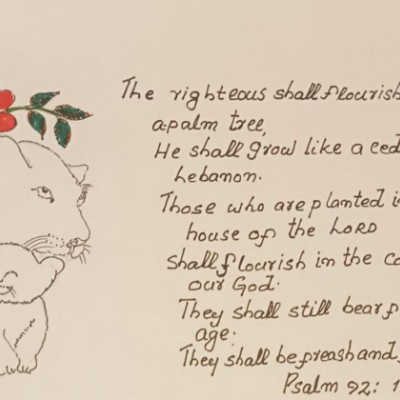 The righteous shall flourish
a palm tree,
He shall grow like a ced
Lebanon.
Those who are planted i
house of the LORD
shall flourish in the co
our God.
They shall still bear f
age.
They shall be freash and
Psalm 92: 1